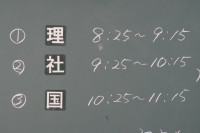 ① 理 8:25～9:15
② 社 9:25～10:15
③ 国 10:25～11:15